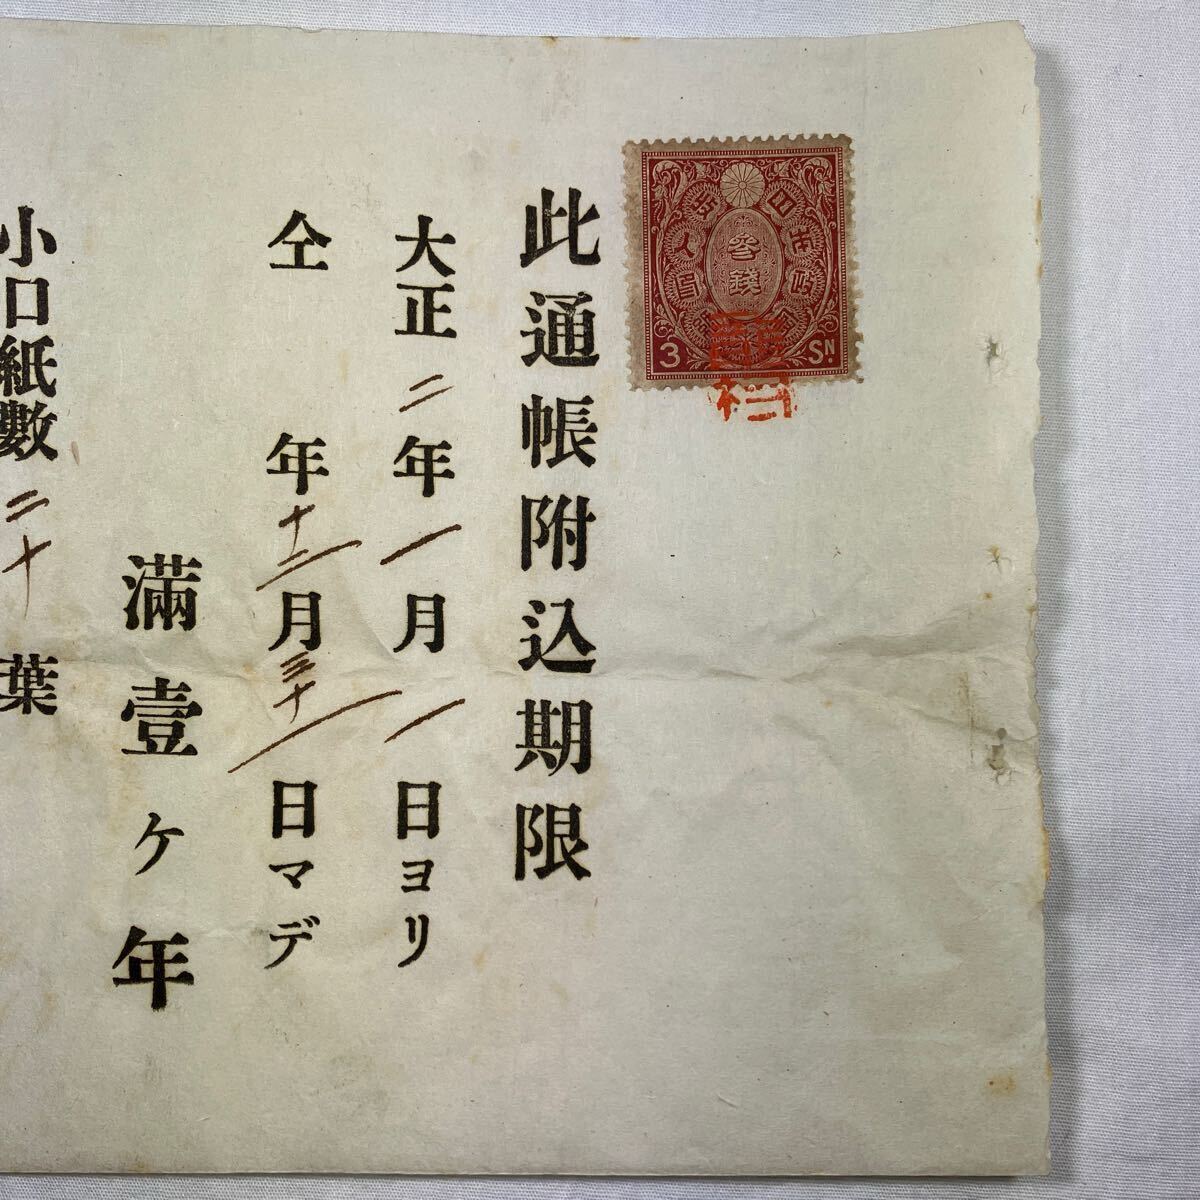 此通帳附込期限
大正二年一月一日ヨリ
仝 年十二月三十一日マデ
満壹ケ年
小口紙數二十葉
参錢
3 SN.